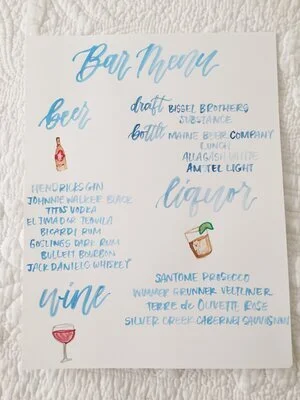 Bar Menu
beer
draft BISSEL BROTHERS
SUBSTANCE
bottle MAINE BEER COMPANY
LUNCH
ALLAGASH WHITE
AMSTEL LIGHT
liquor
HENDRICKS GIN
JOHNNIE WALKER BLACK
TITOS VODKA
EL JIMADOR TEQUILA
BICARDI RUM
GOSLINGS DARK RUM
BULLEIT BOURBON
JACK DANIELS WHISKEY
wine
SANTOME PROSECCO
WIMMER GRUNNER VELTLINER
TERRE de OLIVETTI ROSE
SILVER CREEK CABERNET SAUVIGNON